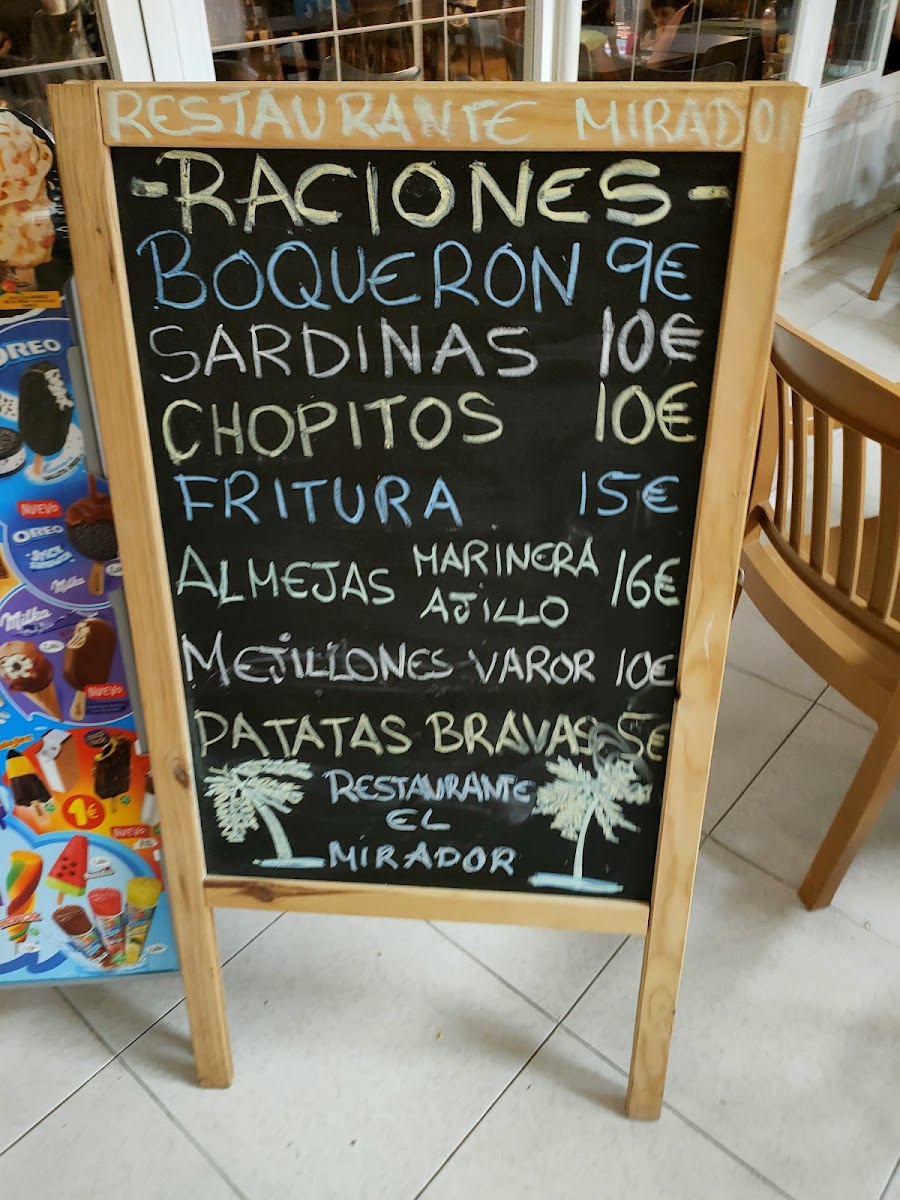 RESTAURANTE MIRADOR
-RACIONES-
BOQUERON 9€
SARDINAS 10€
CHOPITOS 10€
FRITURA 15€
ALMEJAS MARINERA AJILLO 16€
MEJILLONES VAROR 10€
PATATAS BRAVAS 5€
RESTAURANTE
EL
MIRADOR
OREO
NUEVO
OREO
Milka
Milka
NUEVO
1€
NUEVO